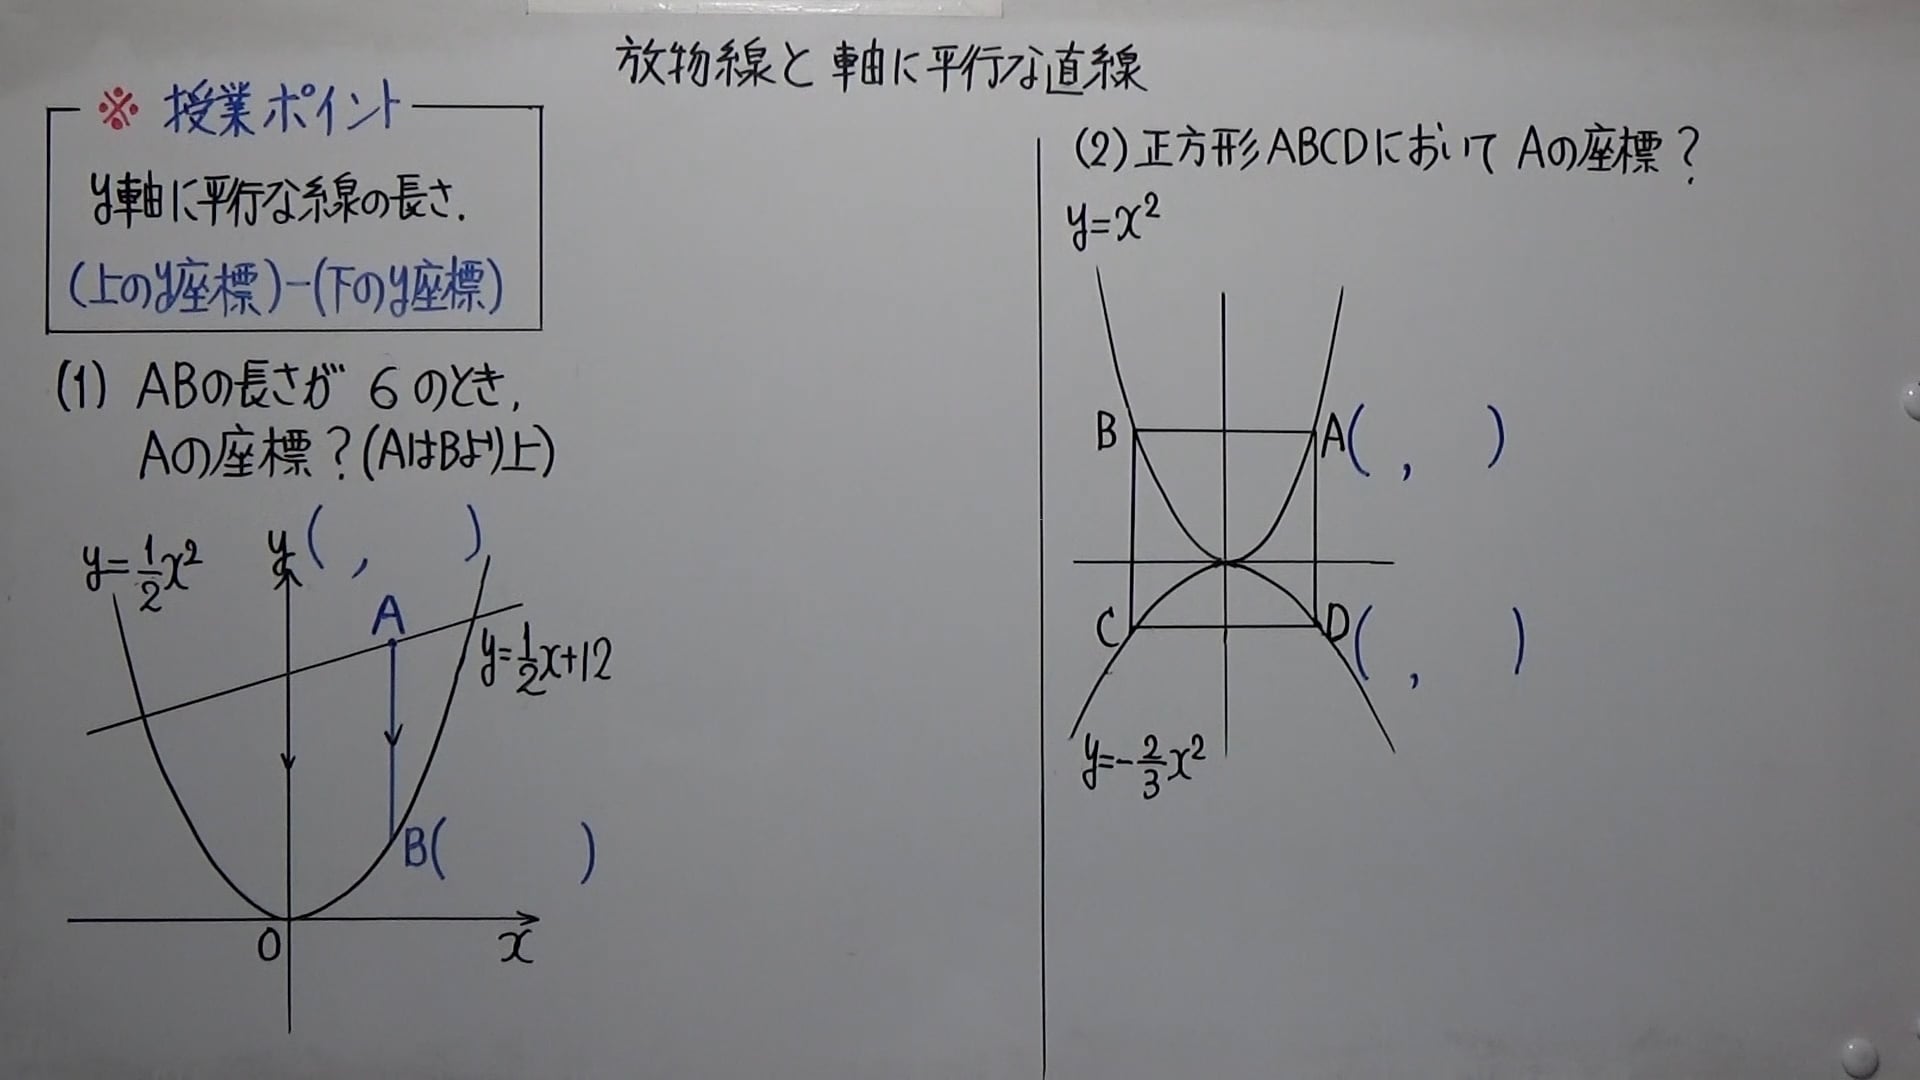 放物線と軸に平行な直線
※ 授業ポイント
y軸に平行な糸線の長さ.
(上のy座標)-(下のy座標)
(1) ABの長さが 6 のとき,
Aの座標?(AはBより上)
y=1/2x²
y
( , )
A
y=1/2x+12
B( )
O
x
(2)正方形ABCDにおいて Aの座標?
y=x²
B
A( , )
C
D( , )
y=-2/3x²